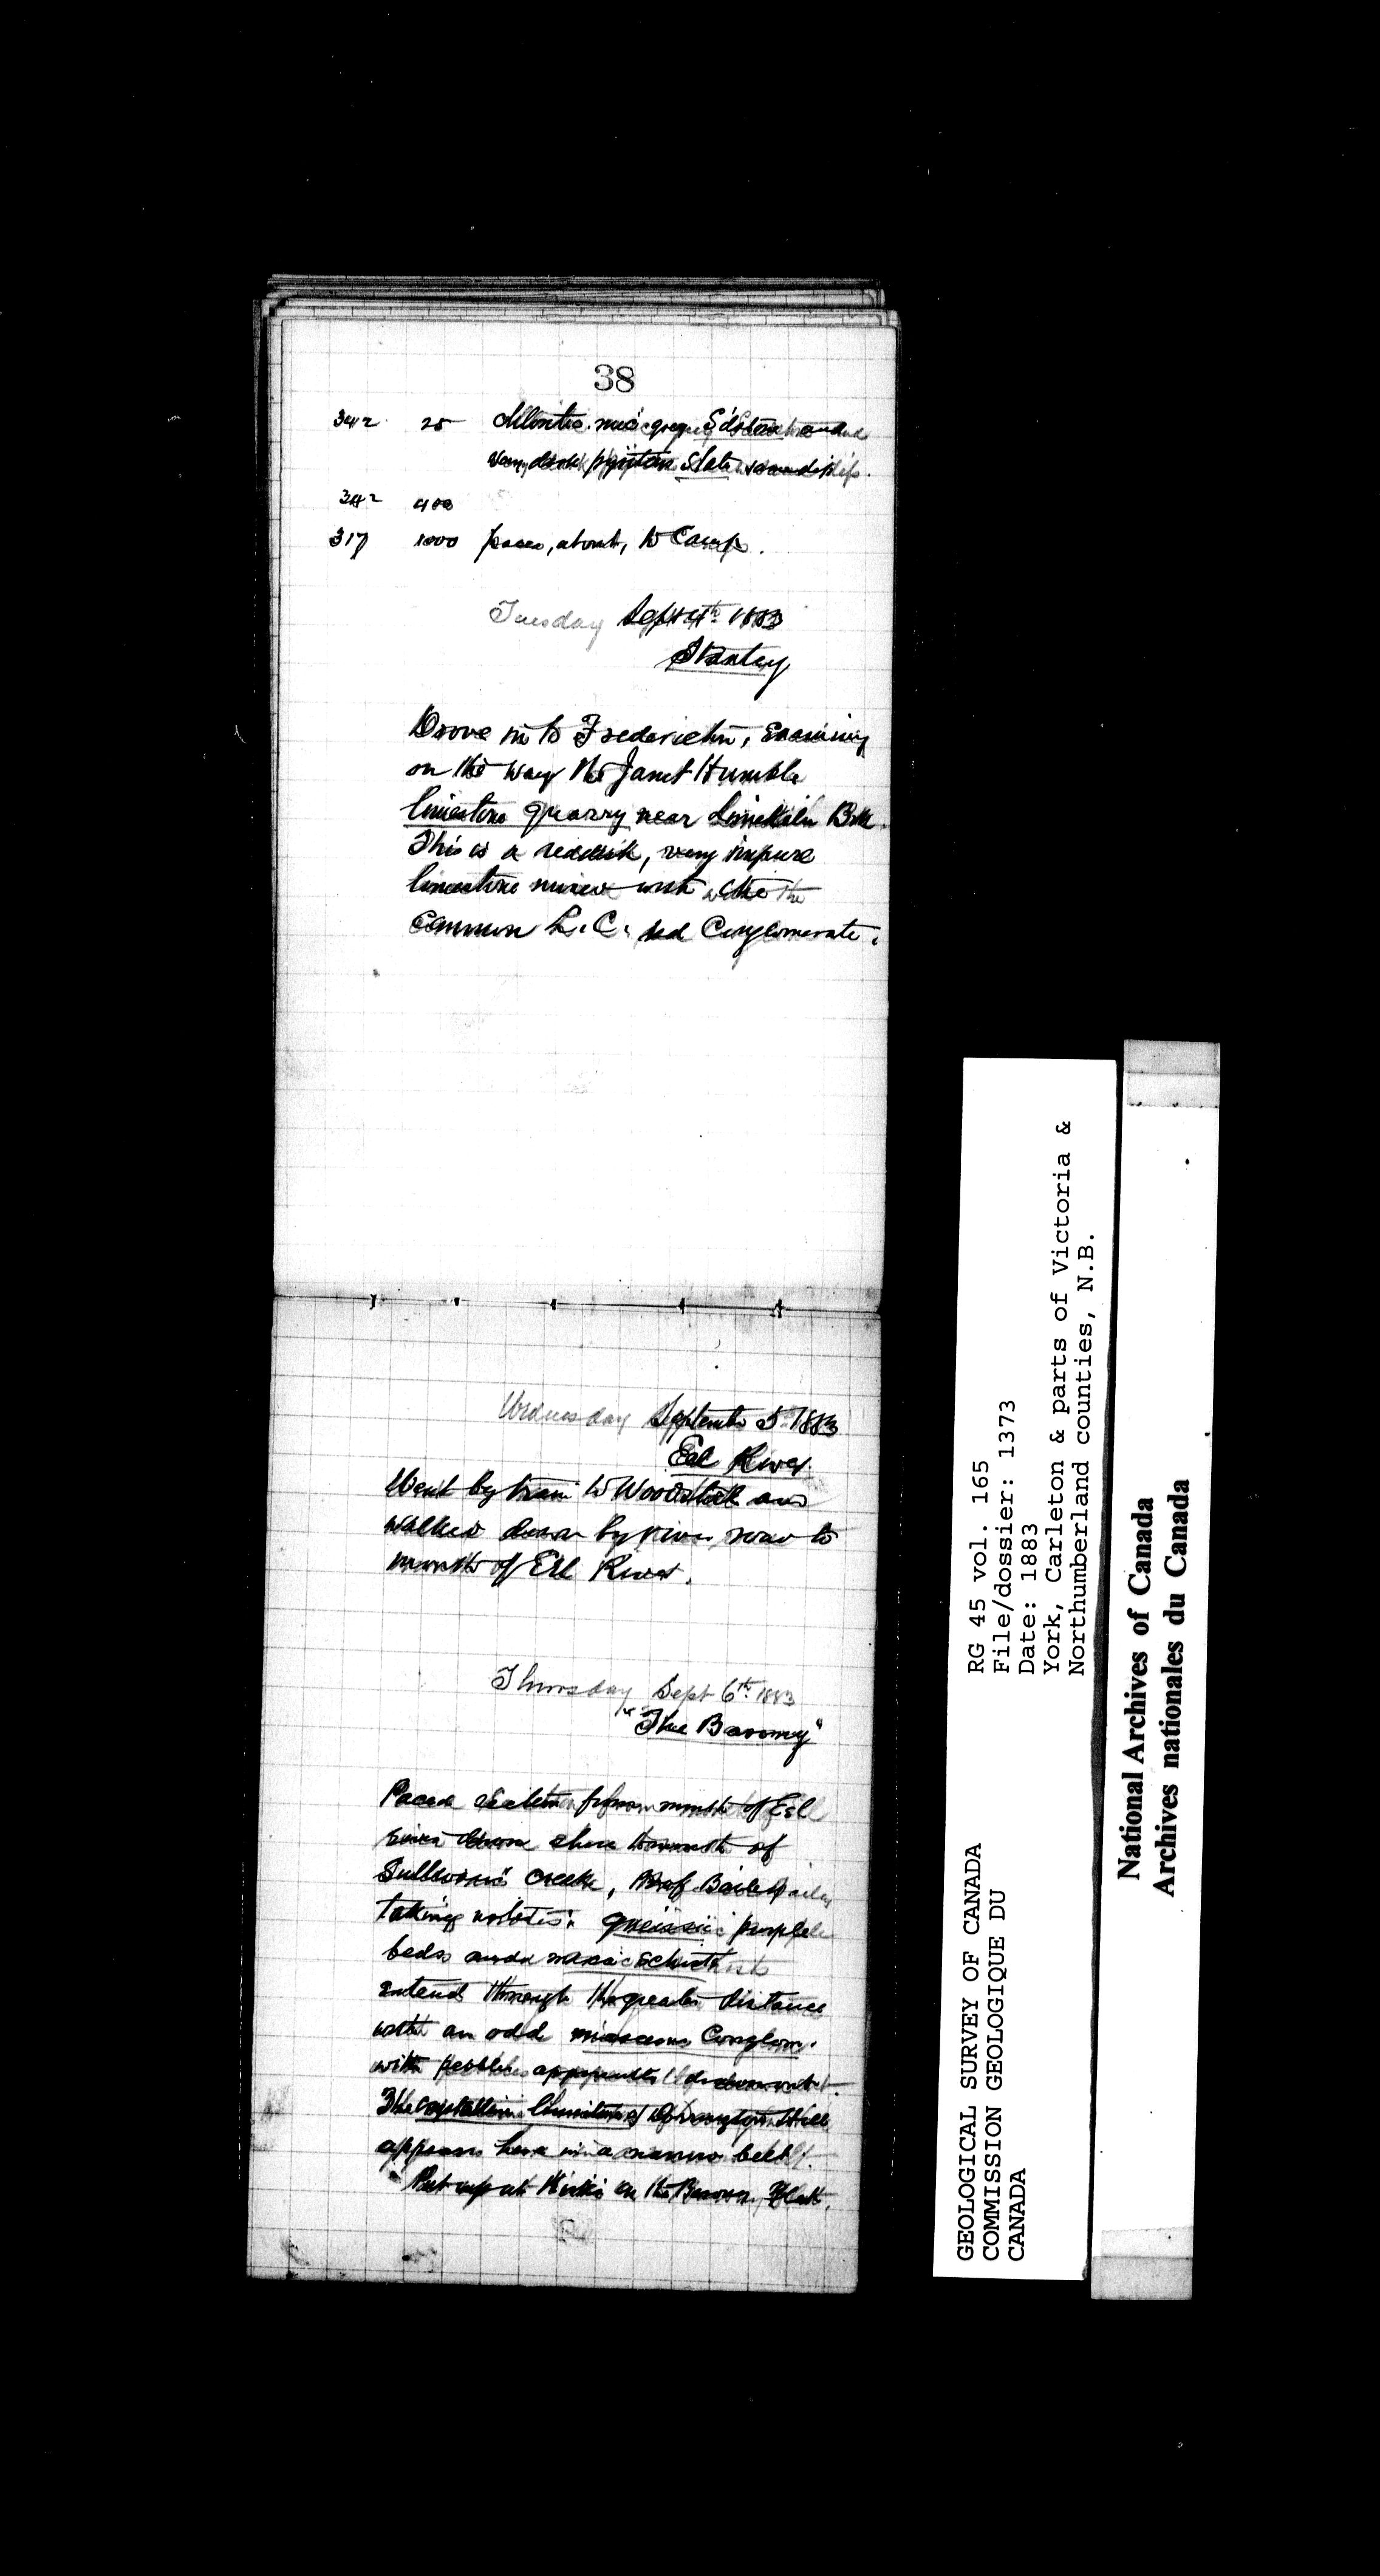 38
342 25 chloritic mic. grey S'dstone and
very dark pyritous slate same dip.
342 400
317 1000 paces, about, to Camp.
Tuesday Sept 4th 1883
Stanley
Drove in to Fredericton, examining
on the way the Janet Humble
limestone quarry near Limekiln Brk.
This is a reddish, very impure
limestone mixed with the
common L. C. red Conglomerate.
Wednesday September 5th 1883
Eel River
Went by train to Woodstock and
walked down by river road to
mouth of Eel River.
Thursday Sept 6th 1883
"The Barony"
Paced section from mouth of Eel
river down shore to mouth of
Sullivan's Creek, Prof. Bailey
taking notes. gneissic purple
beds and schists
extend through the greater distance
with an odd micaceous Conglom.
with pebbles apparently
The crystalline limestone of Hill
appears here in a narrow belt.
Put up at on the Barony Flat.
RG 45 vol. 165
File/dossier: 1373
Date: 1883
York, Carleton & parts of Victoria &
Northumberland counties, N.B.
GEOLOGICAL SURVEY OF CANADA
COMMISSION GEOLOGIQUE DU
CANADA
National Archives of Canada
Archives nationales du Canada